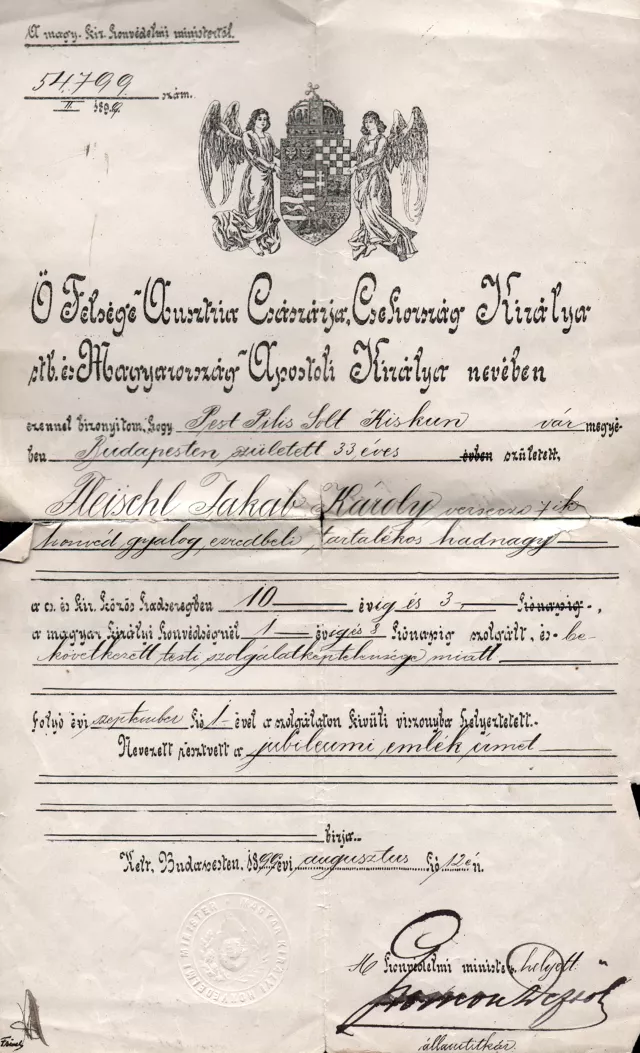 A magy. kir. honvédelmi ministertől.
54.799
II. 1899. szám.
Ő Felsége Ausztria Császárja, Csehország Királya
stb. és Magyarország Apostoli Királya nevében
ezennel bizonyítom, hogy Pest Pilis Solt Kiskun vár megyé-
ben Budapesten született 33 éves évben született,
Fleischl Jakab Károly verseczi 7 ik
honvéd gyalog ezredbeli tartalékos hadnagy
a cs. és kir. közös hadseregben 10 évig és 3 hónapig,
a magyar királyi honvédségnél 1 évig és 8 hónapig szolgált, és be-
következett testi szolgálatképtelensége miatt
folyó évi szeptember hó 1 -ével a szolgálaton kívüli viszonyba helyeztetett.
Nevezett a jubileumi emlék érmet
birja.
Kelt, Budapesten, 1899 évi augusztus hó 12 én.
A honvédelmi minister helyett
államtitkár.